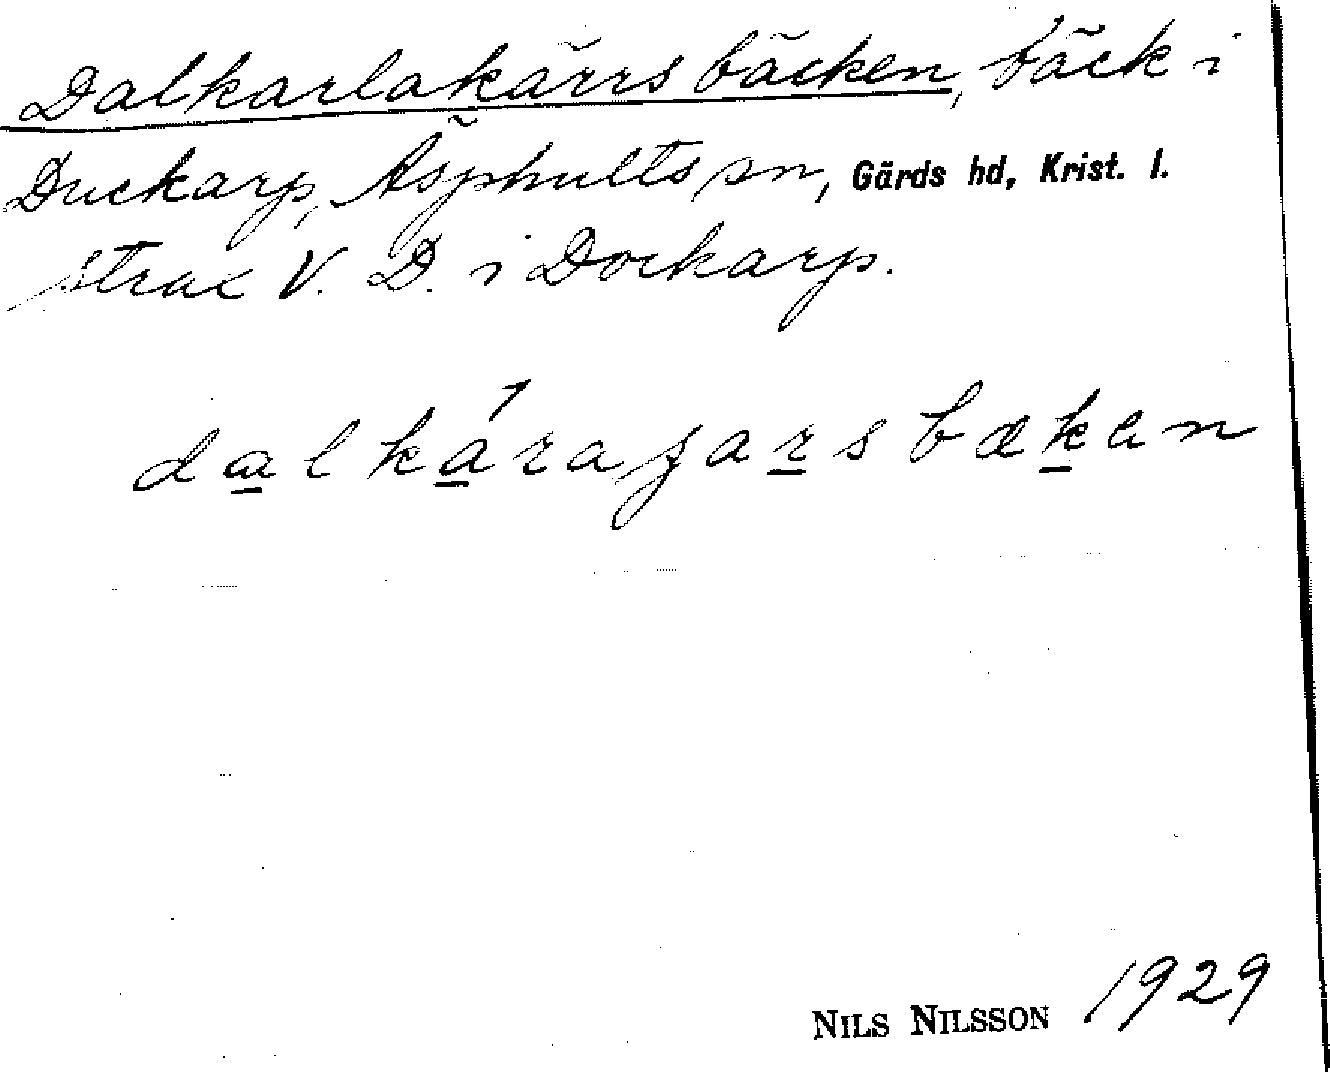 Dalkarlakärrsbäcken, bäck i
Duckarp, Äsphults sn, Gärds hd, Krist. l.
strax V. D. i Dockarp.
dalkáraɡarsbækan
NILS NILSSON 1929